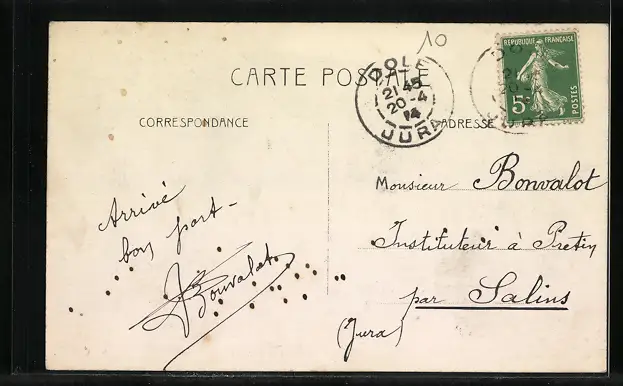 10
CARTE POSTALE
DOLE
21 45
20 - 4
14
JURA
REPUBLIQUE FRANÇAISE
5c
POSTES
CORRESPONDANCE
ADRESSE
Arrivé
bon port -
Bonvalot
Monsieur Bonvalot
Instituteur à Pretin
par Salins
(Jura)